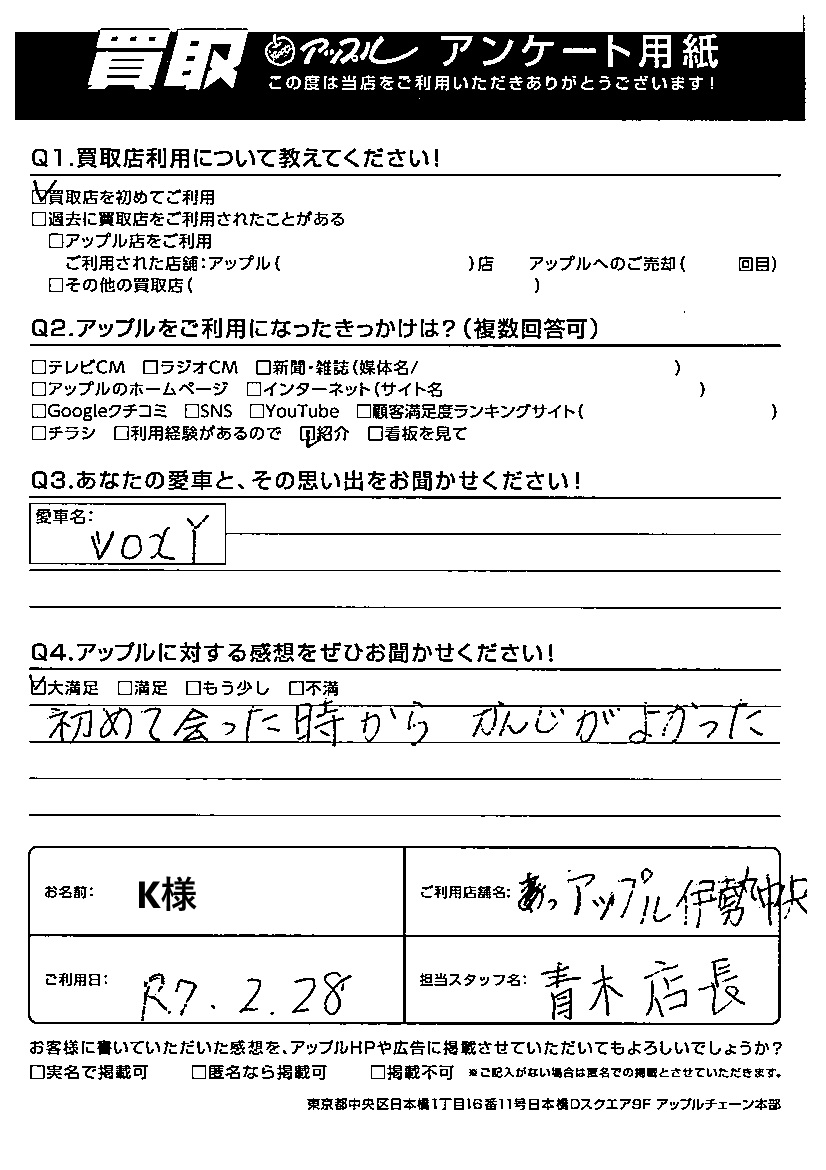 買取 アップル アンケート用紙
この度は当店をご利用いただきありがとうございます!
Q1.買取店利用について教えてください!
☑買取店を初めてご利用
□過去に買取店をご利用されたことがある
□アップル店をご利用
ご利用された店舗:アップル( )店 アップルへのご売却( 回目)
□その他の買取店( )
Q2.アップルをご利用になったきっかけは?(複数回答可)
□テレビCM □ラジオCM □新聞・雑誌(媒体名/ )
□アップルのホームページ □インターネット(サイト名 )
□Googleクチコミ □SNS □YouTube □顧客満足度ランキングサイト( )
□チラシ □利用経験があるので ☑紹介 □看板を見て
Q3.あなたの愛車と、その思い出をお聞かせください!
愛車名:
VOXY
Q4.アップルに対する感想をぜひお聞かせください!
☑大満足 □満足 □もう少し □不満
初めて会った時から かんじがよかった
お名前: K様
ご利用店舗名: アップル伊勢中央
ご利用日: R7.2.28
担当スタッフ名: 青木店長
お客様に書いていただいた感想を、アップルHPや広告に掲載させていただいてもよろしいでしょうか?
□実名で掲載可 □匿名なら掲載可 □掲載不可 ※ご記入がない場合は匿名での掲載とさせていただきます。
東京都中央区日本橋1丁目16番11号日本橋Dスクエア9F アップルチェーン本部